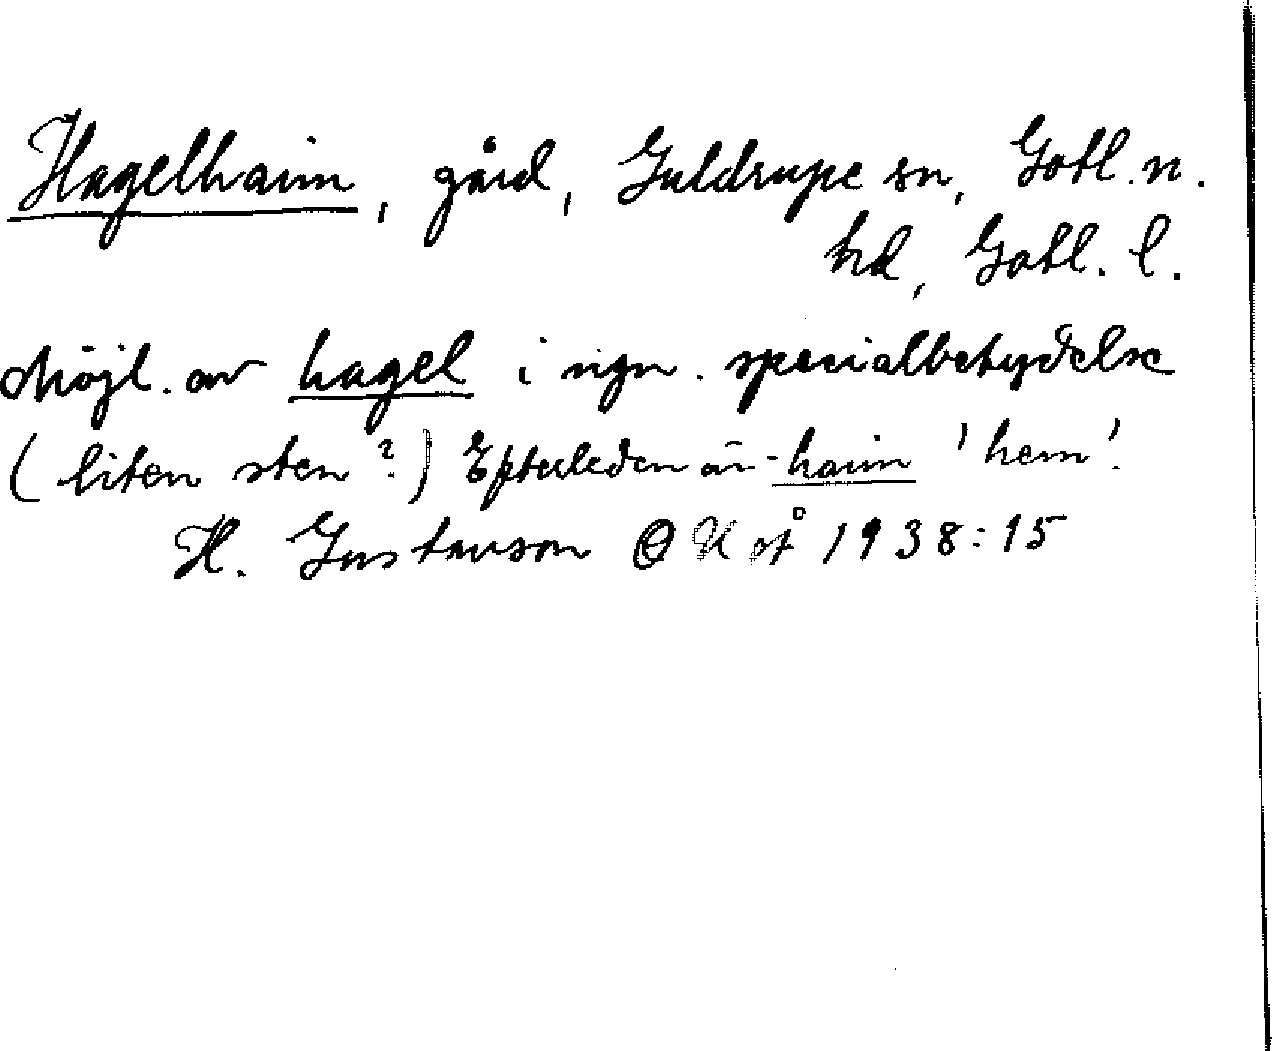 Hagelhaim, gård, Guldrupe sn, Gotl. n.
hd, Gotl. l.
Möjl. av hagel i ngn. specialbetydelse
(liten sten?) Efterleden är -haim 'hem'.
H. Gustavson OUÅ 1938:15